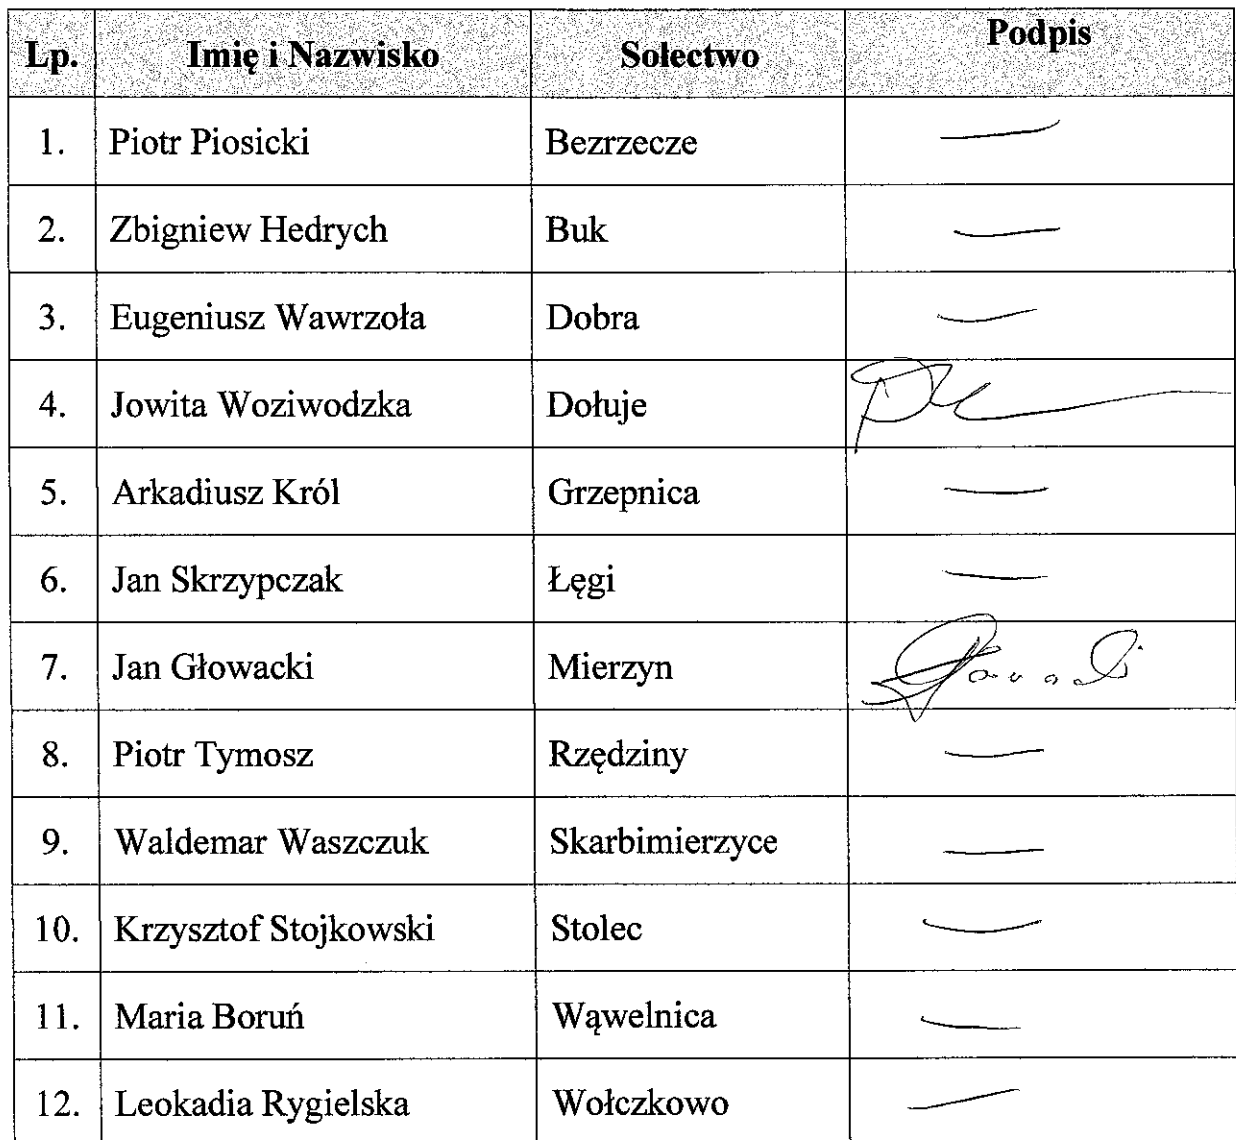 Lp. Imię i Nazwisko Sołectwo Podpis
1. Piotr Piosicki Bezrzecze —
2. Zbigniew Hedrych Buk —
3. Eugeniusz Wawrzoła Dobra —
4. Jowita Woziwodzka Dołuje
5. Arkadiusz Król Grzepnica —
6. Jan Skrzypczak Łęgi —
7. Jan Głowacki Mierzyn
8. Piotr Tymosz Rzędziny —
9. Waldemar Waszczuk Skarbimierzyce —
10. Krzysztof Stojkowski Stolec —
11. Maria Boruń Wąwelnica —
12. Leokadia Rygielska Wołczkowo —